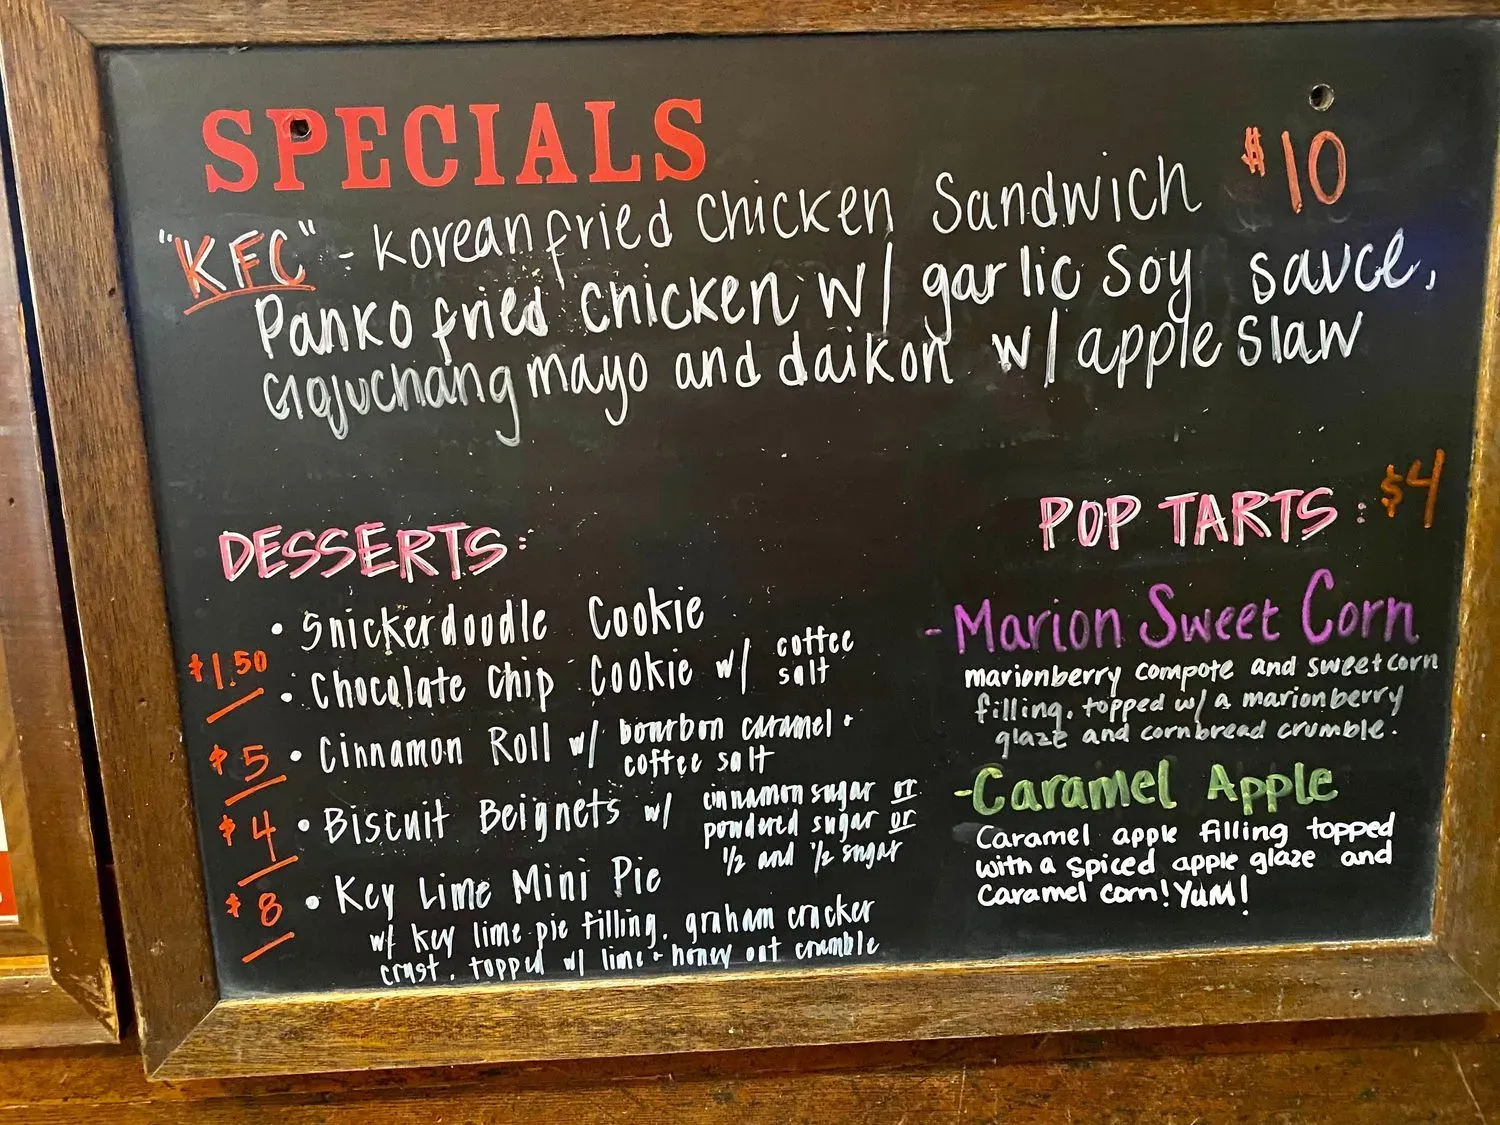 SPECIALS
"KFC" - Korean fried chicken Sandwich $10
Panko fried chicken w/ garlic soy sauce,
Gojuchang mayo and daikon w/ apple slaw
DESSERTS:
• Snickerdoodle Cookie
$1.50
• Chocolate Chip Cookie w/ coffee salt
$5 • Cinnamon Roll w/ bourbon caramel + coffee salt
$4 • Biscuit Beignets w/ cinnamon sugar or
powdered sugar or
1/2 and 1/2 sugar
$8 • Key Lime Mini Pie
w/ key lime pie filling, graham cracker
crust, topped w/ lime + honey oat crumble
POP TARTS: $4
- Marion Sweet Corn
marionberry compote and sweet corn
filling, topped w/ a marionberry
glaze and cornbread crumble.
- Caramel Apple
Caramel apple filling topped
with a spiced apple glaze and
Caramel corn! YUM!